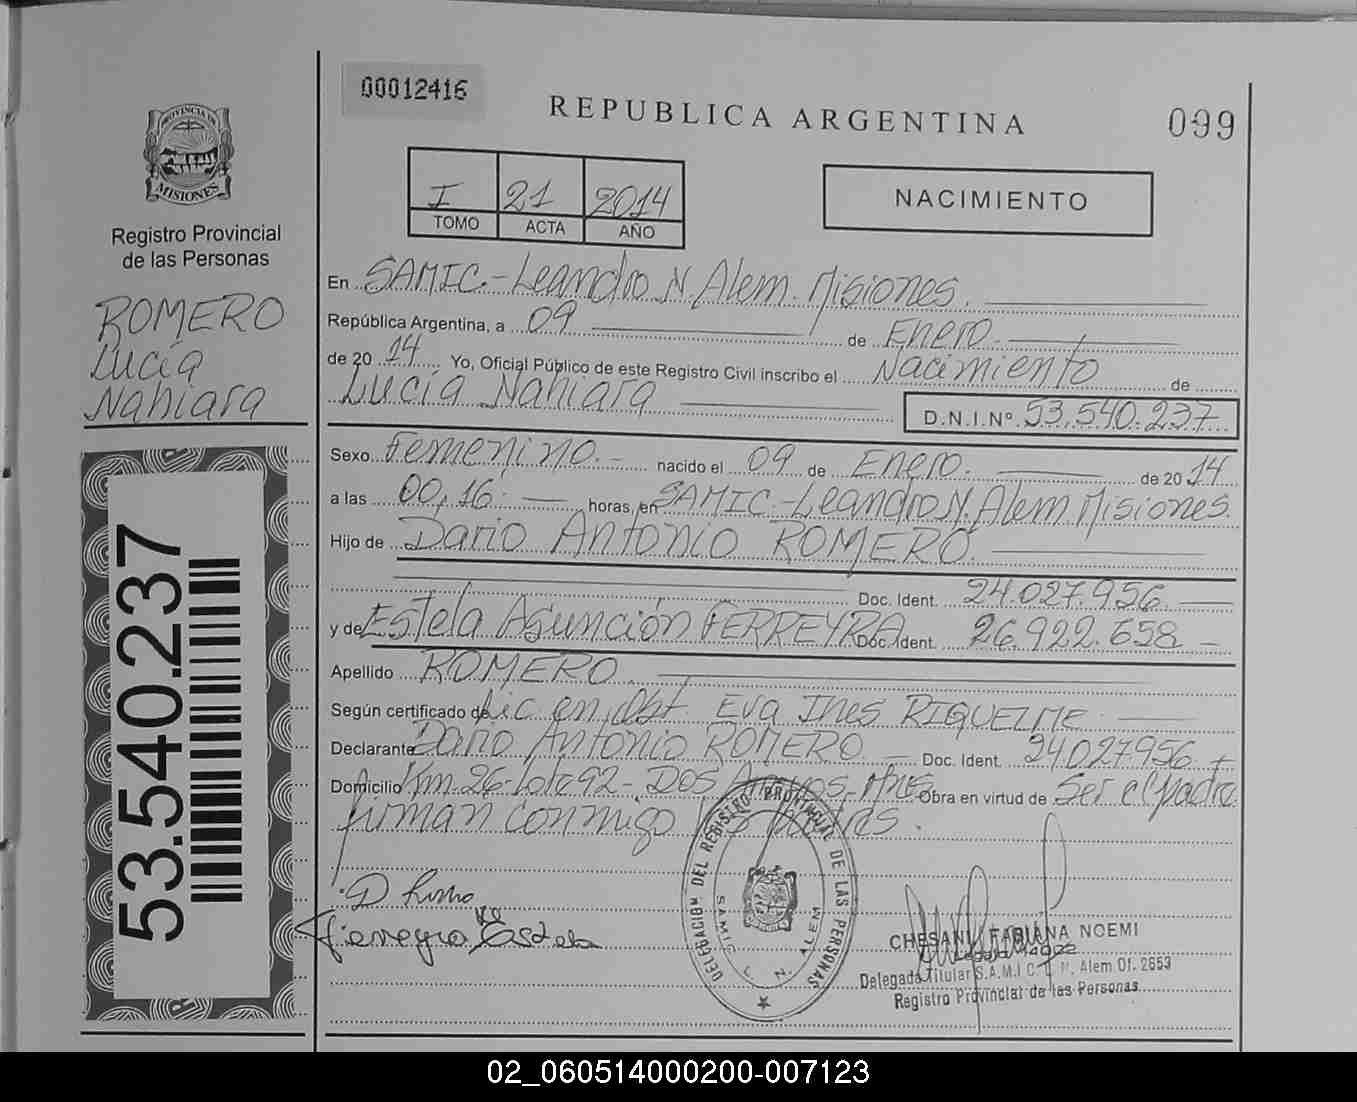 00012416
REPUBLICA ARGENTINA
099
PROVINCIA DE
MISIONES
Registro Provincial
de las Personas
ROMERO
Lucía
Nahiara
53.540.237
I 21 2014
TOMO ACTA AÑO
NACIMIENTO
En SAMIC.-Leandro N. Alem. Misiones.
República Argentina, a 09 de Enero.
de 20 14 Yo, Oficial Público de este Registro Civil inscribo el Nacimiento de
Lucía Nahiara D.N.I.Nº. 53.540.237
Sexo Femenino.- nacido el 09 de Enero. de 20 14
a las 00,16 horas, en SAMIC.-Leandro N. Alem Misiones.
Hijo de Dario Antonio ROMERO.
Doc. Ident. 24.027.956
y de Estela Asunción FERREYRA Doc. Ident. 26.922.658 -
Apellido ROMERO.
Según certificado de Lic en Obst. Eva Ines RIQUELME
Declarante Dario Antonio ROMERO. Doc. Ident. 24027956
Domicilio Km.26-Lote 92- DOS Arroyos, Mnes Obra en virtud de Ser el padre
firman conmigo los padres.
D Romero
Ferreyra Estela
DELEGACION DEL REGISTRO PROVINCIAL DE LAS PERSONAS
SAMIC L. N. ALEM
CHESANI FABIANA NOEMI
Delegada Titular S.A.M.I.C. L. N. Alem Of. 2653
Registro Provincial de las Personas
02_060514000200-007123